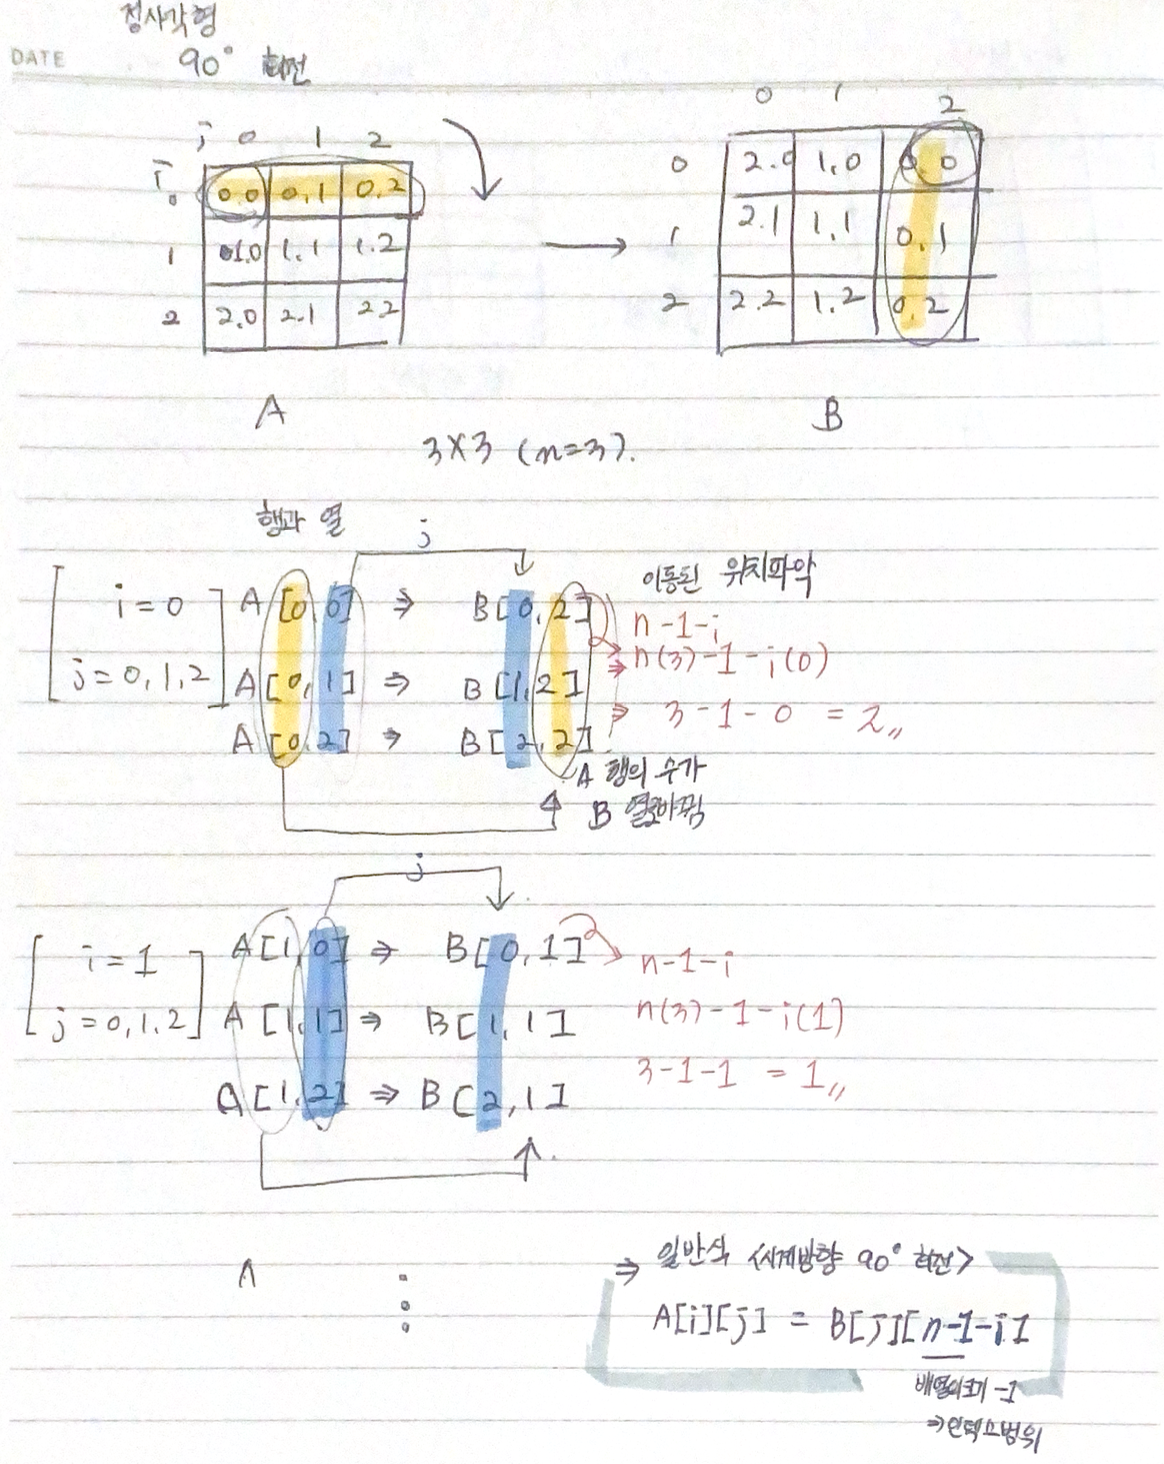 정사각형
DATE
90° 회전
j 0 1 2
i
0 0.0 0,1 0.2
1 1.0 1.1 1.2
2 2.0 2.1 2.2
A
0 1 2
0 2.0 1.0 0.0
1 2.1 1.1 0.1
2 2.2 1.2 0.2
B
3X3 (n=3).
행과 열
j
이동된 위치파악
i=0
j=0,1,2
A[0,0] ⇒ B[0,2]
A[0,1] ⇒ B[1,2]
A[0,2] ⇒ B[2,2]
n-1-i
n(3)-1-i(0)
3-1-0 = 2,,
A 행의 수가
B 열로바뀜
j
i=1
j=0,1,2
A[1,0] ⇒ B[0,1]
A[1,1] ⇒ B[1,1]
A[1,2] ⇒ B[2,1]
n-1-i
n(3)-1-i(1)
3-1-1 = 1,,
A
⇒ 일반식 <시계방향 90° 회전>
A[i][j] = B[j][n-1-i]
배열의크기 -1
⇒인덱스범위